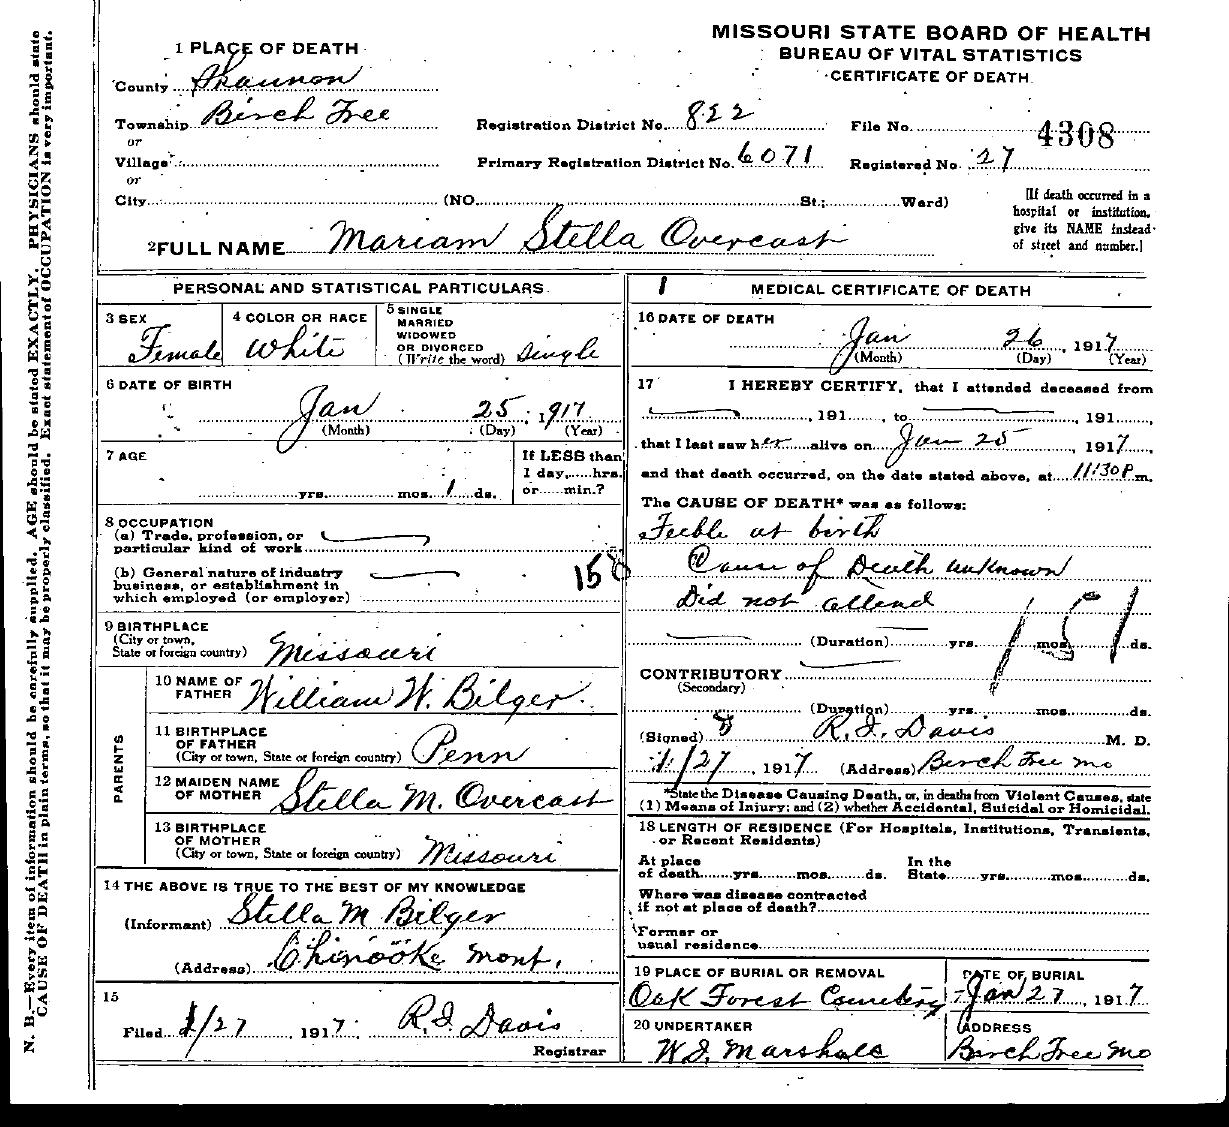 MISSOURI STATE BOARD OF HEALTH
BUREAU OF VITAL STATISTICS
CERTIFICATE OF DEATH
1 PLACE OF DEATH
County Shannon
Township Birch Tree
or
Village
or
City (NO. St.; Ward)
Registration District No. 822
File No. 4308
Primary Registration District No. 6071
Registered No. 27
[If death occurred in a
hospital or institution,
give its NAME instead
of street and number.]
2 FULL NAME Mariam Stella Overcast
PERSONAL AND STATISTICAL PARTICULARS
3 SEX
Female
4 COLOR OR RACE
White
5 SINGLE
MARRIED
WIDOWED
OR DIVORCED
(Write the word) Single
6 DATE OF BIRTH
Jan 25, 1917
(Month) (Day) (Year)
7 AGE
yrs. mos. 1 ds.
If LESS than
1 day, hrs.
or min.?
8 OCCUPATION
(a) Trade, profession, or
particular kind of work
(b) General nature of industry
business, or establishment in
which employed (or employer)
158
9 BIRTHPLACE
(City or town,
State or foreign country) Missouri
PARENTS
10 NAME OF
FATHER William W. Bilger
11 BIRTHPLACE
OF FATHER
(City or town, State or foreign country) Penn
12 MAIDEN NAME
OF MOTHER Stella M. Overcast
13 BIRTHPLACE
OF MOTHER
(City or town, State or foreign country) Missouri
14 THE ABOVE IS TRUE TO THE BEST OF MY KNOWLEDGE
(Informant) Stella M Bilger
(Address) Chinooke Mont.
15
Filed 1/27, 1917. R.I. Davis
Registrar
1 MEDICAL CERTIFICATE OF DEATH
16 DATE OF DEATH
Jan 26, 1917
(Month) (Day) (Year)
17 I HEREBY CERTIFY, that I attended deceased from
, 191 , to , 191 ,
that I last saw her alive on Jan 25, 1917,
and that death occurred, on the date stated above, at 11:30 P m.
The CAUSE OF DEATH* was as follows:
Feeble at birth
Cause of Death unknown
Did not attend
151
(Duration) yrs. mos. ds.
CONTRIBUTORY
(Secondary)
(Duration) yrs. mos. ds.
(Signed) R.I. Davis M. D.
1/27, 1917 (Address) Birch Tree Mo
*State the Disease Causing Death, or, in deaths from Violent Causes, state
(1) Means of Injury; and (2) whether Accidental, Suicidal or Homicidal.
18 LENGTH OF RESIDENCE (For Hospitals, Institutions, Transients,
or Recent Residents)
At place
of death yrs. mos. ds.
In the
State yrs. mos. ds.
Where was disease contracted
if not at place of death?
Former or
usual residence
19 PLACE OF BURIAL OR REMOVAL
Oak Forest Cemetery
DATE OF BURIAL
Jan 27, 1917
20 UNDERTAKER
W.I. Marshall
ADDRESS
Birch Tree Mo
N. B.—Every item of information should be carefully supplied. AGE should be stated EXACTLY. PHYSICIANS should state
CAUSE OF DEATH in plain terms, so that it may be properly classified. Exact statement of OCCUPATION is very important.